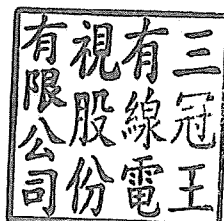 三冠王
有線電
視股份
有限公司